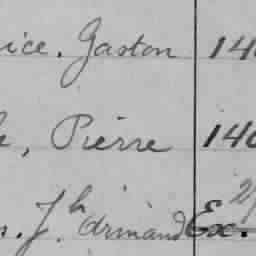 ice. Gaston 140
e, Pierre 140
n. Jh. Armand Ex.